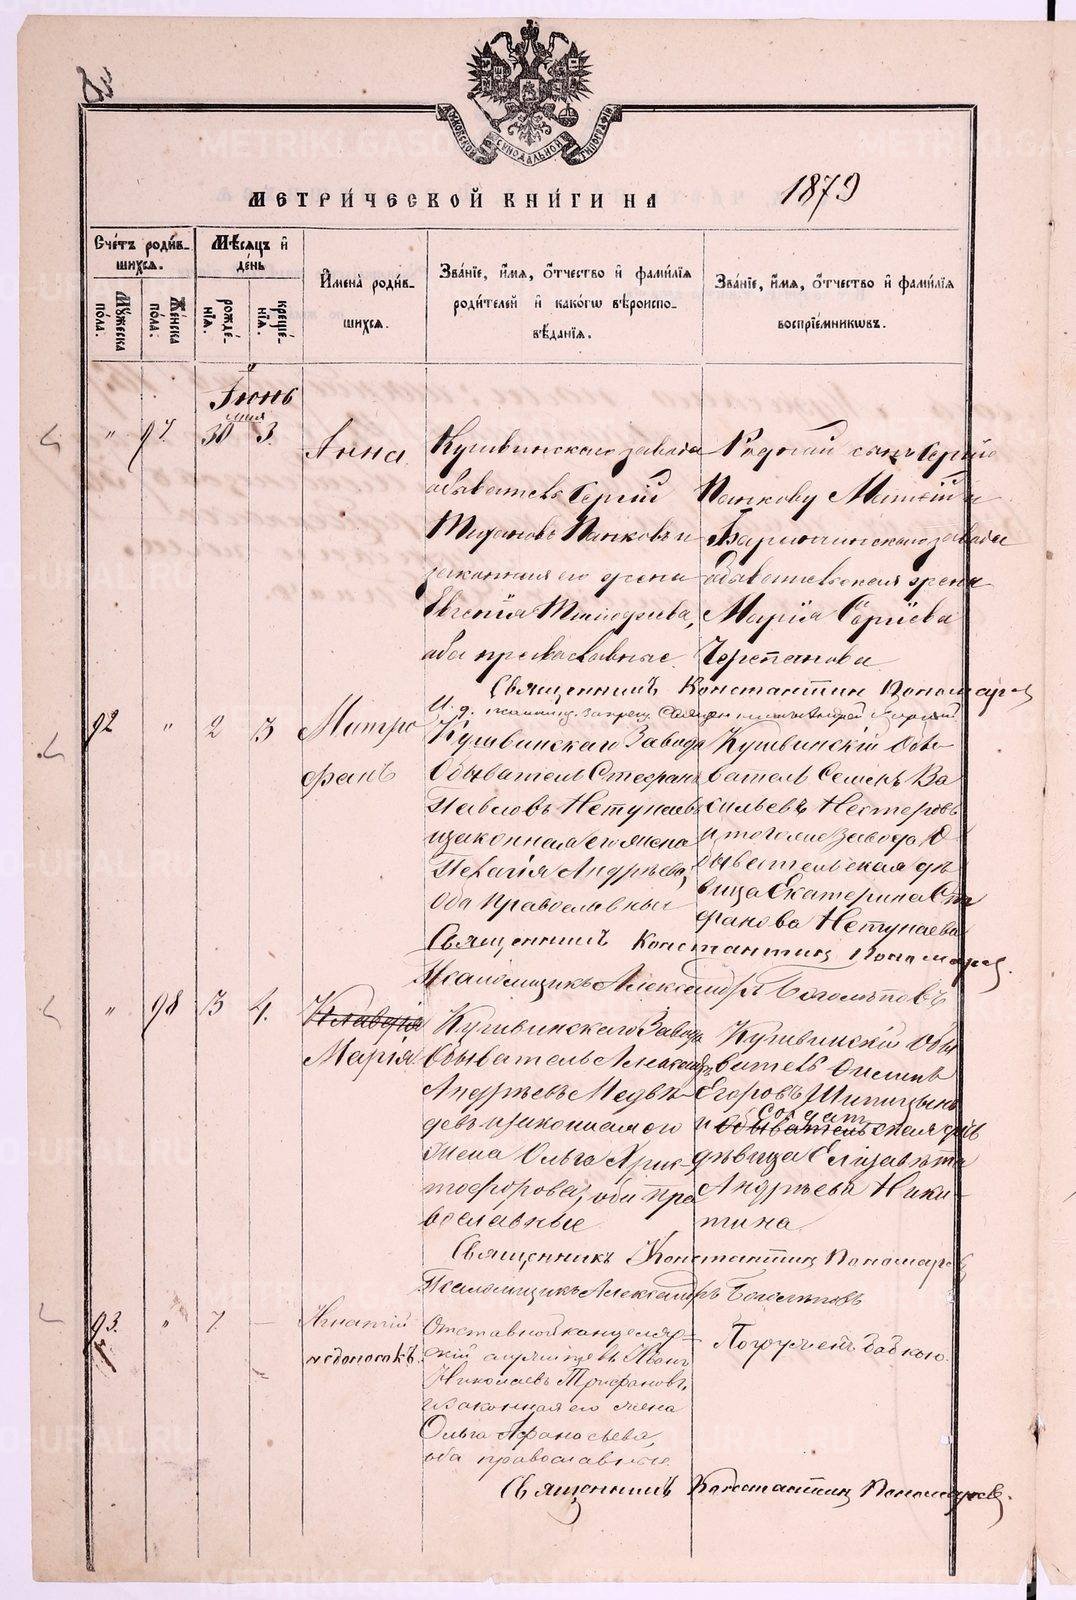 МОСКОВСКОЙ СѴНОДАЛЬНОЙ ТИПОГРАФІИ
МЕТРИ́ЧЕСКОЙ КНИ́ГИ НА 1879
Сче́тъ роди́в-
шихсѧ.
Мѣ́сѧцъ и҆
де́нь
Му́жеска
по́ла.
Же́нска
по́ла.
рожде́-
нїѧ.
креще́-
нїѧ.
И҆мена̀ роди́в-
шихсѧ.
Зва́нїе, и҆́мѧ, ѻ҆́тчество и҆ фами́лїѧ
роди́телей и҆ како́гѡ вѣроиспо-
вѣ́данїѧ.
Зва́нїе, и҆́мѧ, ѻ҆́тчество и҆ фами́лїѧ
воспрїе́мникѡвъ.
Іюнь
мая
" 97. 30 3.
Анна
Кушвинскаго завода
обыватель Сергій
Пановъ и
законная его жена
Евгенія Тимофеева,
оба православные.
Родной сынъ Сергію
Панкову Матвій и
Баранчинскаго завода
обывательская жена
Марія Сергіева
Черепанова
Священникъ Константин Пономарев
92 " 2 3
Митро
фанъ
Кушвинскаго Завода
Обыватель Стефанъ
Павловъ Нетунаевъ
и законная его жена
Пелагія Андрѣева,
оба православныи
Кушвинскій Обы-
ватель Семенъ Ва
сильевъ Нестеровъ
и тогоже Завода О
бывательская дѣ
вица Екатерина Сте
фанова Нетунаева
Священникъ Константинъ Пономарев.
Псаломщикъ Александръ Боголѣповъ
" 98 3 4.
Клавдія
Марія
Кушвинскаго Завода
Обыватель Алексѣй
Андрѣевъ Медвѣ-
девъ и законная его
жена Ольга Хрис-
тофорова, оба пра
вославные
Кушвинскій Обы
ватель Филипъ
Егоровъ Шипицынъ
Солдат
и Обывательская
дѣвица Елизавета
Андрѣева Ники-
тина
Священникъ Константин Пономарев
Псаломщикъ Александръ Боголѣповъ
93. " 7. —
Игнатій
недоносокъ.
Отставной канцеляр-
скій служитель Иванъ
Николаевъ Трифановъ
и законная его жена
Ольга Афанасьева,
оба православные.
Погруженъ бабкою.
Священникъ Константин Пономарев.